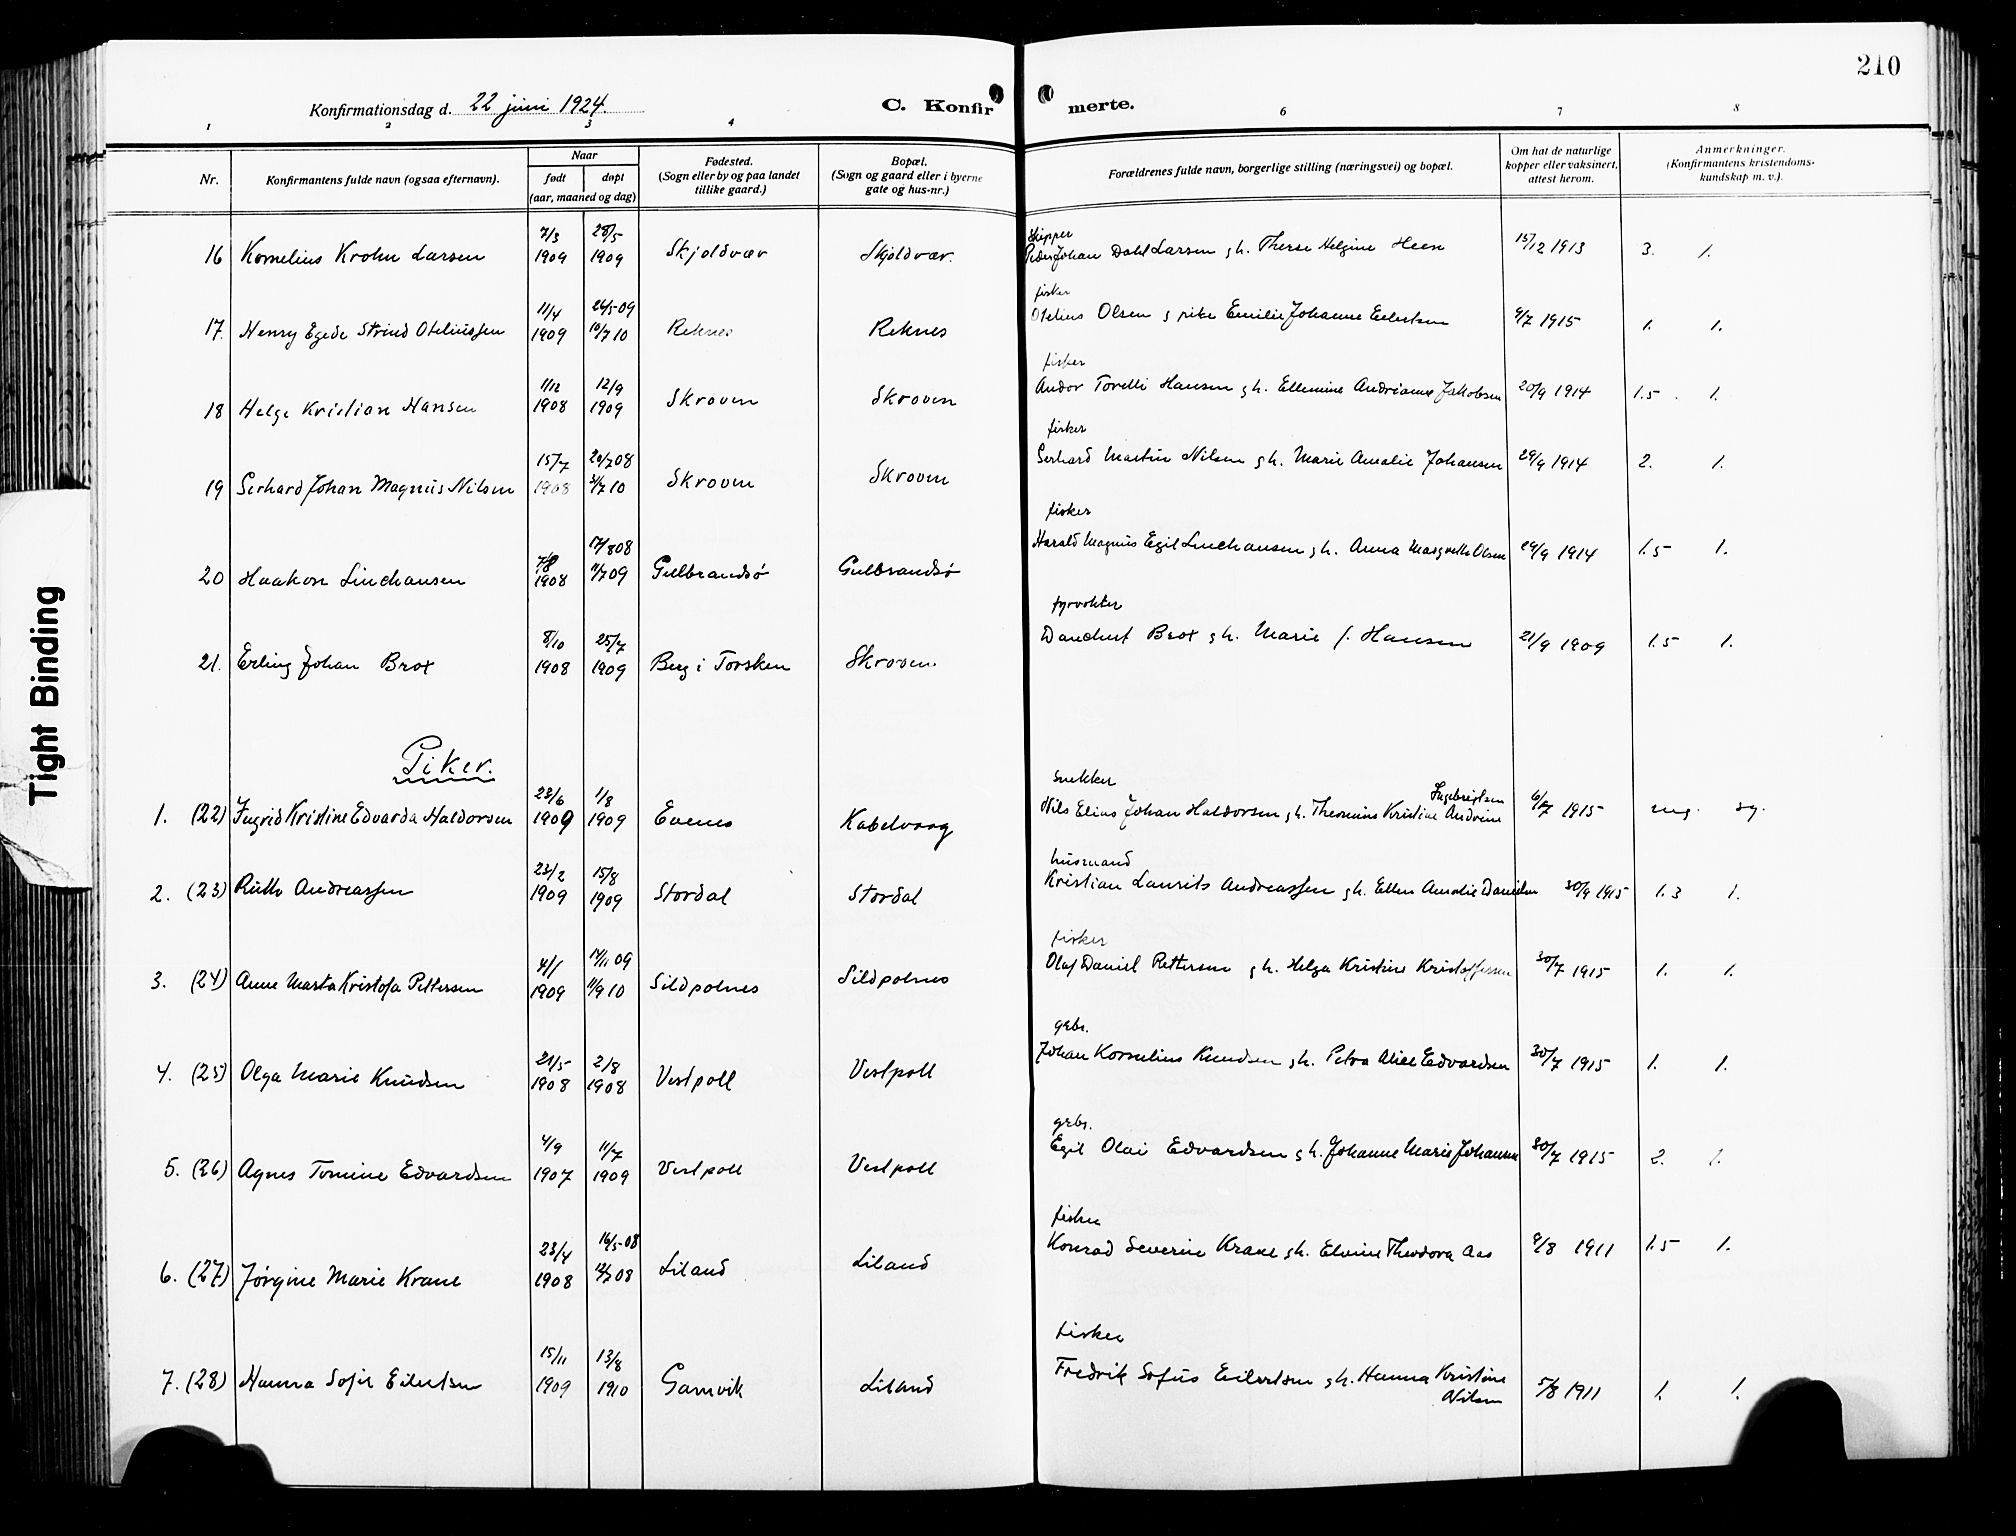 210
Konfirmationsdag d. 22 juni 1924.
C. Konfirmerte.
1 2 3 4 6 7 8
Nr.
Konfirmantens fulde navn (ogsaa efternavn).
Naar
født døpt
(aar, maaned og dag)
Fødested.
(Sogn eller by og paa landet
tillike gaard.)
Bopæl.
(Sogn og gaard eller i byerne
gate og hus-nr.)
Forældrenes fulde navn, borgerlige stilling (næringsvei) og bopæl.
Om hat de naturlige
kopper eller vaksinert,
attest herom.
Anmerkninger.
(Konfirmantens kristendoms-
kundskap m. v.).
Skipper
16 Kornelius Krohn Larsen 7/3 1909 28/5 1909 Skjoldvær Skjoldvær. Peder Johan Dahl Larsen g h. Therese Helgine Heen 15/12 1913 3. 1.
fisker
17. Henry Egede Strind Oteliussen 11/4 1909 26/5-09 10/7 10 Reknes Reknes Otelius Olsen g pike Emilie Johanne Eilertsen 9/7 1915 1. 1.
fisker
18 Helge Kristian Hansen 1/12 1908 12/9 1909 Skroven Skroven Andor Torelli Hansen g h. Ellemine Andrianne Jakobsen 20/9 1914 1.5 1.
fisker
19 Gerhard Johan Magnus Nilsen 15/7 1908 20/7 08 3/7 10 Skroven Skroven Gerhard Martin Nilsen g h. Marie Amalie Johansen 29/9 1914 2. 1.
fisker
20 Haakon Linchausen 7/8 1908 17/8 08 11/7 09 Gulbrandsø Gulbrandsø Harald Magnus Egil Linchausen g h. Anna Margrethe Olsen 29/9 1914 1.5 1.
fyrvokter
21. Erling Johan Brox 8/10 1908 25/7 1909 Berg i Torsken Skroven. Danchert Brox g h. Marie f. Hansen 21/9 1909 1.5 1.
Piker.
snekker
1. (22) Ingrid Kristine Edvarda Haldorsen 23/6 1909 1/8 1909 Evenes Kabelvaag Nils Elias Johan Haldorsen g h. Kristine Andrine Ingebrigtsen 6/7 1915 mg. sg.
husmand
2. (23) Ruth Andreassen 23/2 1909 15/8 1909 Stordal Stordal Kristian Laurits Andreassen g h. Ellen Amalie Danielsen 30/9 1915 1.3 1.
fisker
3. (24) Anne Marta Kristofa Pettersen 4/1 1909 14/11 09 11/9 10 Sildpolnes Sildpolnes Olaf Daniel Pettersen g h. Helga Kristine Kristoffersen 30/7 1915 1. 1.
grbr.
4. (25) Olga Marie Knudsen 21/5 1908 2/8 1908 Vestpoll Vestpoll Johan Kornelius Knudsen g h. Petra Alice Edvardsen 30/7 1915 1. 1.
grbr.
5. (26) Agnes Tomine Edvardsen 4/9 1907 11/7 1909 Vestpoll Vestpoll Egil Olai Edvardsen g h. Johanne Marie Johansen 30/7 1915 2. 1.
fisker
6. (27) Jørgine Marie Krane 23/4 1908 16/5-08 12/7 08 Liland Liland Konrad Severin Krane g h. Elvine Theodora Aas 9/8 1911 1.5 1.
fisker
7. (28) Hanna Sofie Eilertsen 15/11 1909 13/8 1910 Gamvik Liland Fredrik Sofus Eilertsen g h. Hanna Kristine Nilsen 5/8 1911 1. 1.
Tight Binding